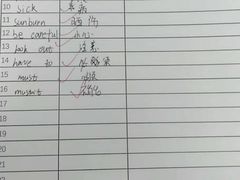 10 sick 生病
11 sunburn 晒伤
12 be careful 小心
13 look out 注意
14 have to 不得不
15 must
16 mustn't
17
18
19
20
21
22